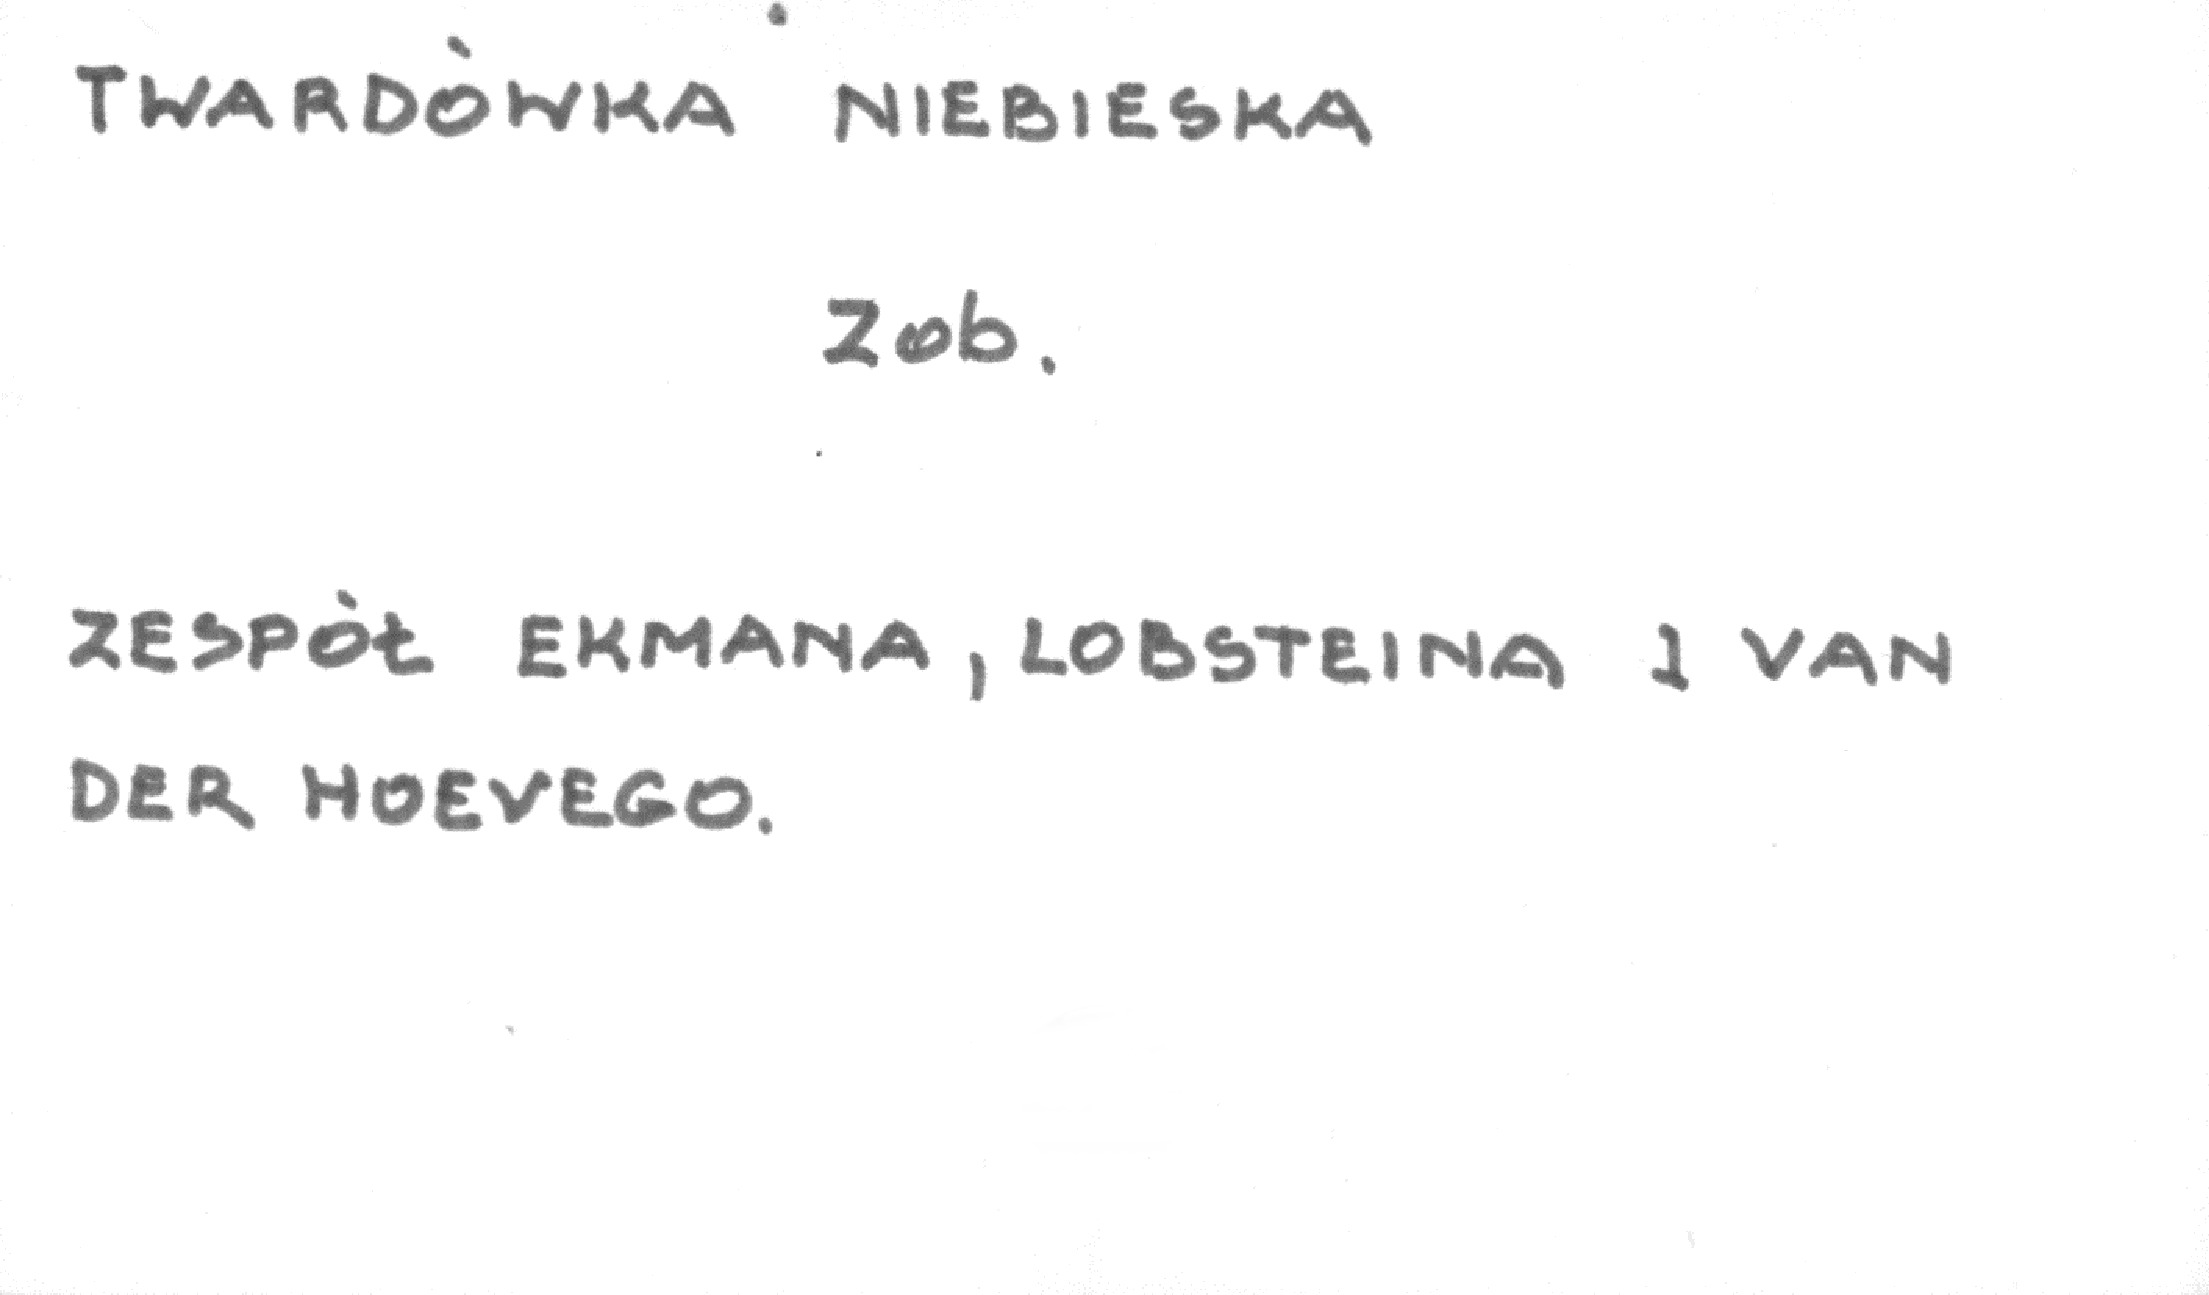 TWARDÓWKA NIEBIESKA
Zob.
ZESPÓŁ EKMANA, LOBSTEINA I VAN
DER HOEVEGO.